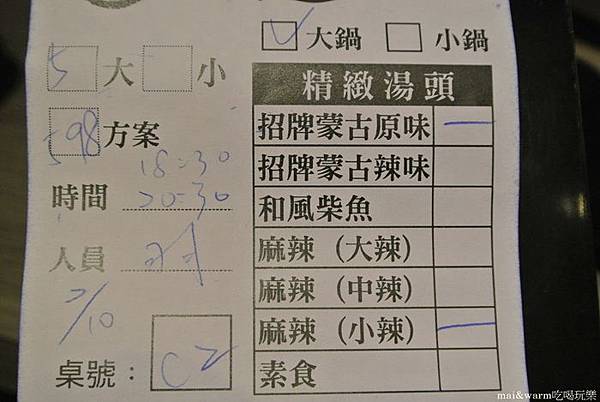 ✓ 大鍋 □ 小鍋
5 大 □ 小
598 方案
時間 18:30
20:30
人員
7/10
桌號： C2
精緻湯頭
招牌蒙古原味 一
招牌蒙古辣味
和風柴魚
麻辣（大辣）
麻辣（中辣）
麻辣（小辣） 一
素食
mai&warm吃喝玩樂